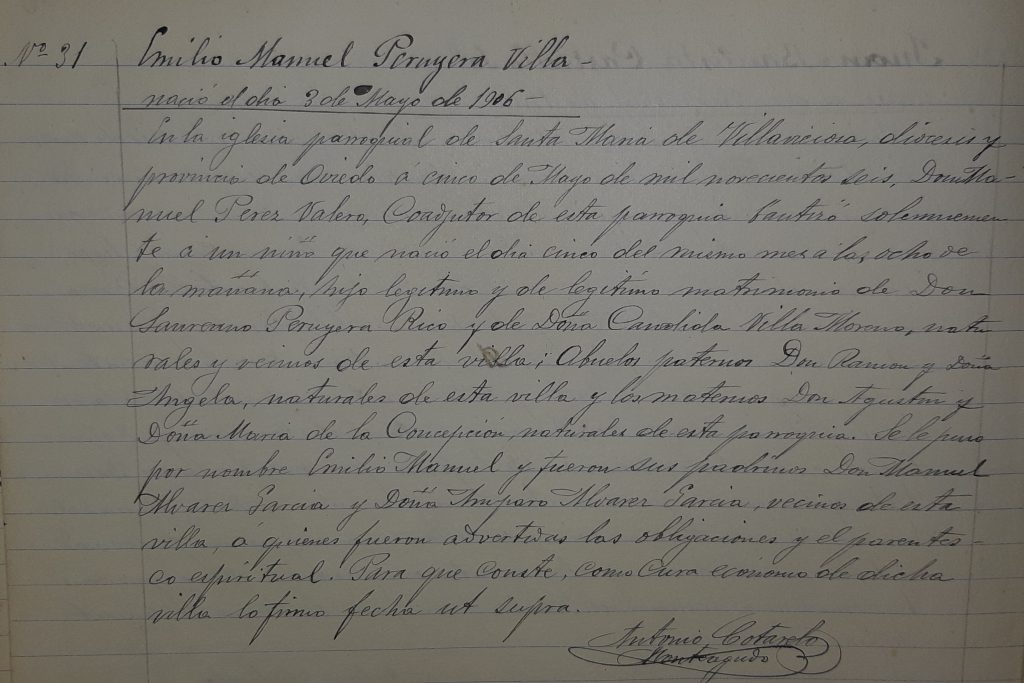 Nº 31
Emilio Manuel Peruyera Villa -
nació el dia 3 de Mayo de 1906 -
En la iglesia parroquial de Santa Maria de Villaviciosa, diocesis y
provincia de Oviedo á cinco de Mayo de mil novecientos seis, Don Ma-
nuel Perez Valero, Coadjutor de esta parroquia bautizó solemnemen
te á un niño que nació el dia cinco del mismo mes a las ocho de
la mañana, hijo legitimo y de legítimo matrimonio de Don
Laureano Peruyera Rico y de Doña Candida Villa Moreno, natu
rales y vecinos de esta villa; Abuelos paternos Don Ramon y Doña
Angela, naturales de esta villa y los maternos Don Agustin y
Doña Maria de la Concepción, naturales de esta parroquia. Se le puso
por nombre Emilio Manuel y fueron sus padrinos Don Manuel
Alvarez Garcia y Doña Amparo Alvarez Garcia, vecinos de esta
villa, á quienes fueron advertidas las obligaciones y el parentes-
co espiritual. Para que conste, como Cura ecónomo de dicha
villa lo firmo fecha ut supra.
Antonio Cotarelo
Montragudo